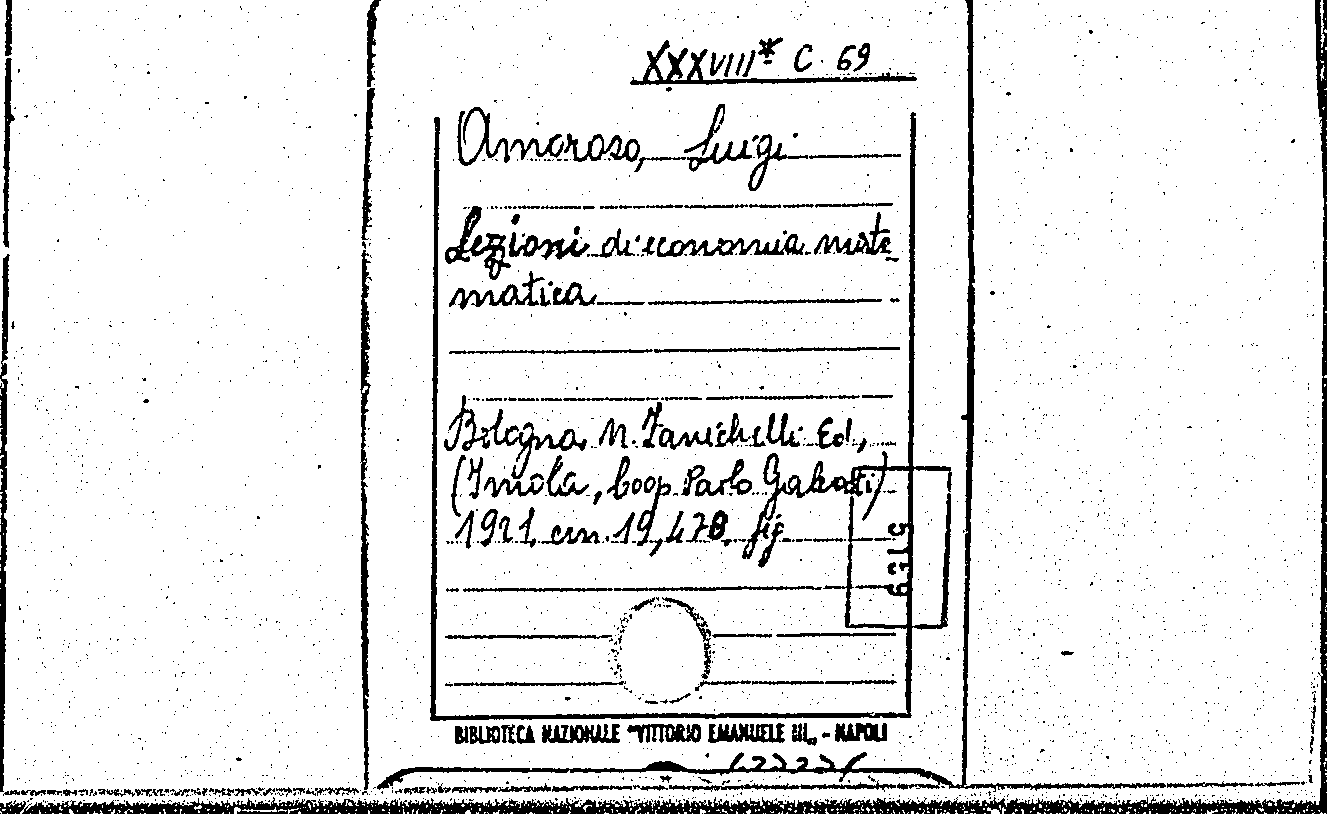 XXXVIII* C. 69
Amoroso, Luigi
Lezioni di economia mate
matica
Bologna, N. Zanichelli Ed.,
(Imola, Coop. Paolo Galeati)
1921. cm. 19, 478. fig.
BIBLIOTECA NAZIONALE "VITTORIO EMANUELE III„ - NAPOLI